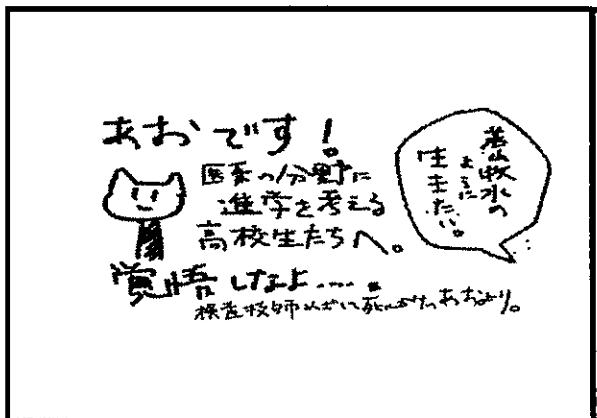 あおです!
医系の分野に
進学を考える
高校生たちへ。
覚悟しなよ....。
検査技師めざして死にかけのあおより。
若山牧水の
ように
生きたい。